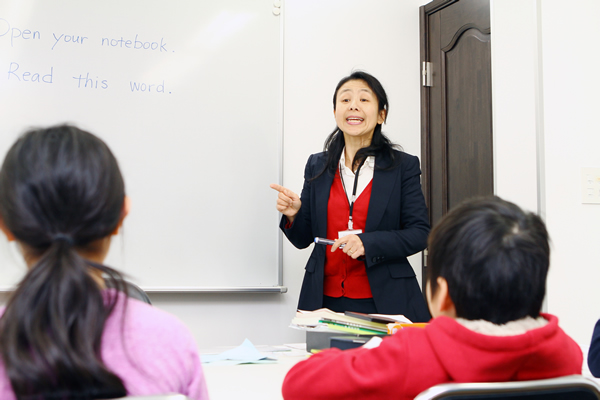 Open your notebook.
Read this word.